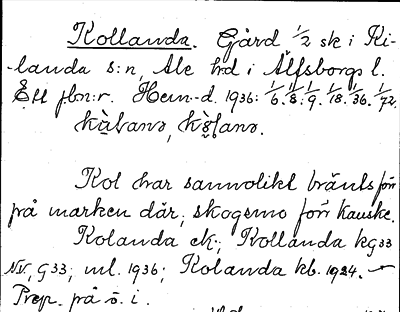 Kollanda. Gård 1/2 sk i Ki-
-landa s:n, Ale hd i Älfsborgs l.
Ett jbn:r. Hem.-d. 1936: 1/6. 1/8. 1/9. 1/18. 1/36. 1/72.
Kol har sannolikt bränts förr
på marken där, skogsmo förr kanske.
Kolanda ek.; Kollanda kG33
NV, G33; ml. 1936; Kolanda kb. 1924.
Prep. på ö. i.